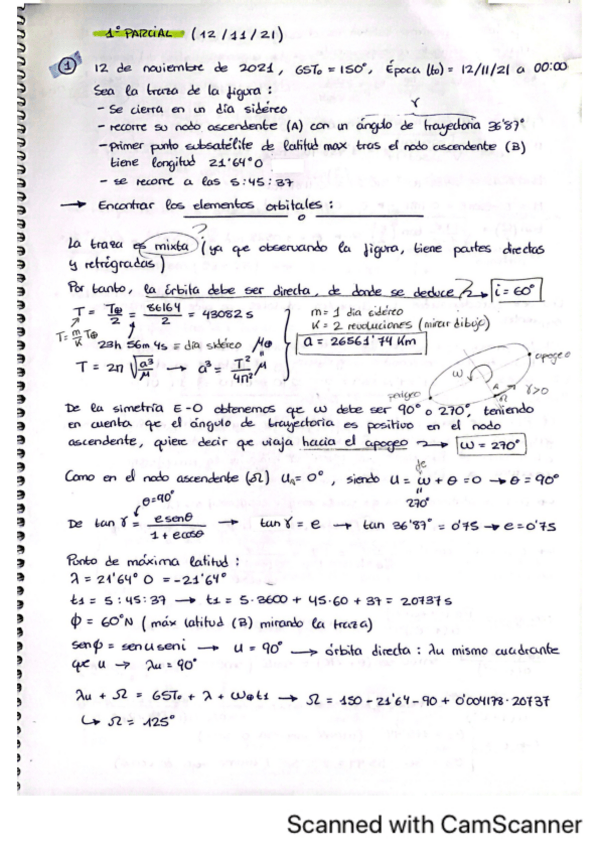 1º PARCIAL (12/11/21)
① 12 de noviembre de 2021, GSTo = 150º, Época (to) = 12/11/21 a 00:00
Sea la traza de la figura:
- Se cierra en un día sidéreo
γ
- recorre su nodo ascendente (A) con un ángulo de trayectoria 36'87º
- Primer punto subsatélite de latitud max tras el nodo ascendente (B)
tiene longitud 21'64º O
- se recorre a las 5:45:37
→ Encontrar los elementos orbitales:
?
La traza es mixta (ya que observando la figura, tiene partes directas
y retrógradas)
Por tanto, la órbita debe ser directa, de donde se deduce → i = 60º
T = T⊕/2 = 86164/2 = 43082 s
m = 1 día sidéreo
T = m/K T⊕
K = 2 revoluciones (mirar dibujo)
23h 56m 4s = día sidéreo
μ⊕
a = 26561'74 Km
T = 2π √(a³/μ) → a³ = T²/4π² μ
apogeo
ω
A
Ω
γ>0
perigeo
De la simetría E-O obtenemos que ω debe ser 90º o 270º, teniendo
en cuenta que el ángulo de trayectoria es positivo en el nodo
ascendente, quiere decir que viaja hacia el apogeo → ω = 270º
de
Como en el nodo ascendente (Ω) uA = 0º, siendo u = ω + θ = 0 → θ = 90º
270º
θ=90º
De tan γ = e senθ / 1 + e cosθ → tan γ = e → tan 36'87º = 0'75 → e = 0'75
Punto de máxima latitud:
λ = 21'64º O = -21'64º
t1 = 5:45:37 → t1 = 5·3600 + 45·60 + 37 = 20737 s
ϕ = 60º N (máx latitud (B) mirando la traza)
senϕ = senu seni → u = 90º → órbita directa: λu mismo cuadrante
que u → λu = 90º
λu + Ω = GSTo + λ + ω⊕t1 → Ω = 150 - 21'64 - 90 + 0'004178·20737
↳ Ω = 125º
Scanned with CamScanner